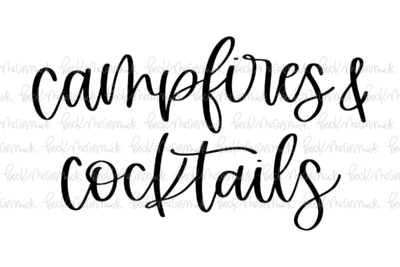 campfires &
cocktails